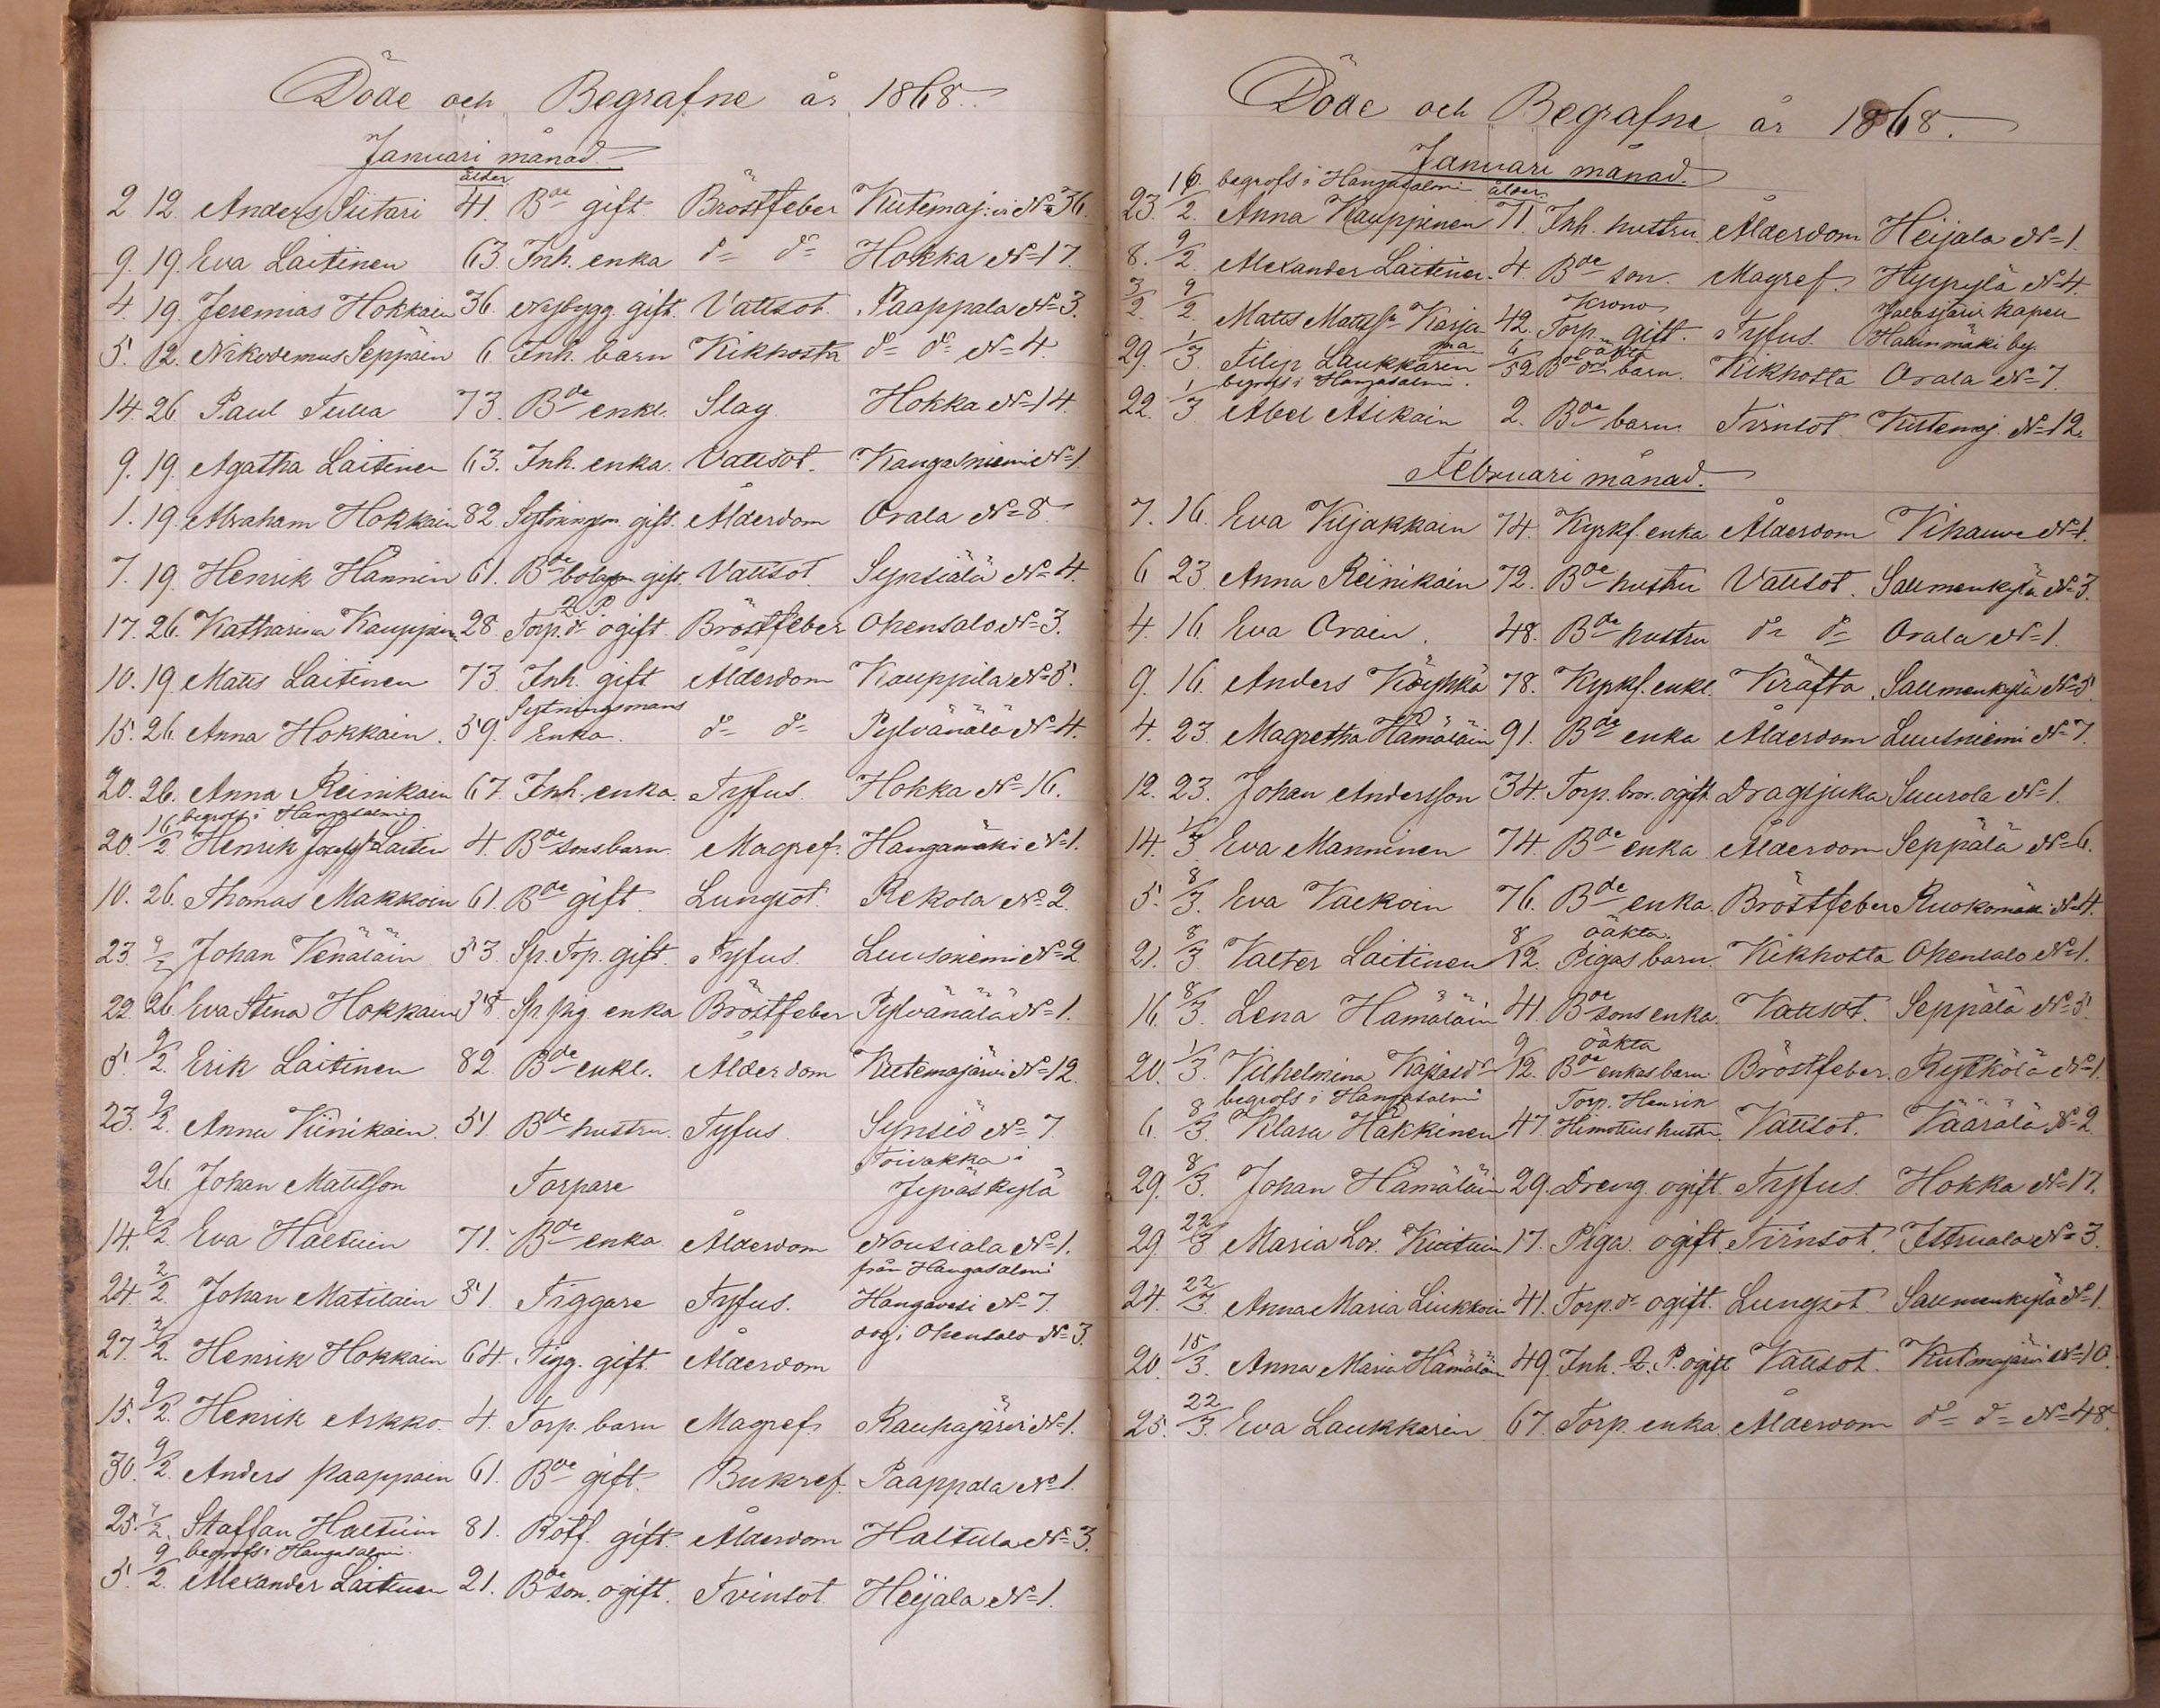 Döde och Begrafne år 1868.
Januari månad.
ålder
2 12. Anders Siitari 41. Bde gift. Bröstfeber Kutemaj:vi No 36.
9. 19. Eva Laitinen 63. Inh. enka do do Hokka No 17.
4. 19. Jeremias Hokkain 36. Nybygg. gift. Vattsot. Paappala No 3.
5. 12. Nikodemus Seppäin 6 Inh. barn Kikhosta do do No 4.
14. 26. Paul Tulla 73. Bde enkl. Slag Hokka No 14.
9. 19. Agatha Laitinen 63. Inh. enka. Vattsot. Kangasniemi No 1.
1. 19. Abraham Hokkain 82. Sytningsm. gift. Ålderdom Orala No 8.
7. 19. Henrik Hännin 61. Bde bolagm gift. Vattsot Synsiälä No 4.
2 P
17. 26. Katharina Kauppin. 28. Torp. dr ogift. Bröstfeber Ohensalo No 3.
10. 19 Matts Laitinen 73. Inh. gift Ålderdom Kauppila No 5.
Sytningsmans
15. 26. Anna Hokkain. 59. Enka. do do Pylvänälä No 4.
20. 26. Anna Reinikain 67. Inh. enka. Tyfus. Hokka No 16.
16 begrofs i Hangasalmi
20. /2 Henrik Josefss Laitin 4. Bde sonsbarn. Magref. Hangamäki No 1.
10. 26. Thomas Makkoin 61. Bde gift. Lungsot. Rekola No 2.
23. 9/2 Johan Venäläin 53. Sp. Trp. gift. Tyfus. Luusniemi No 2
22. 26 Eva Stina Hokkain 38. Sp. pig. enka Bröstfeber Pylvänälä No 1.
5. 9/2. Erik Laitinen 82. Bde enkl. Ålderdom Kutemajärvi No 12.
23. 9/2. Anna Viinikain. 51. Bde hustru. Tyfus. Synsiö No 7.
Toivakka i
26 Johan Mattsson Torpare Jyväskylä
14. 2/2. Eva Haltuin 71. Bde enka Ålderdom Nousiala No 1.
från Hangasalmi
24. 2/2 Johan Matilain 51. Tiggare Tyfus. Kangavesi No 7.
dog i Ohensalo No 3.
27. 2/2. Henrik Hokkain 64. Tigg. gift. Ålderdom
15. 9/2. Henrik Askko. 4. Torp. barn Magref. Rauhajärvi No 1.
30. 9/2. Anders Paappain 61. Bde gift. Bukref. Paappala No 1.
25. 9/2. Staffan Haltuin 81. Rotf. gift. Ålderdom Haltula No 3.
9 begrofs i Hangasalmi.
5. /2. Alexander Laitinen 21. Bde son. ogift. Tvinsot. Heijala No 1.
Döde och Begrafne år 1868.
Januari månad.
16. begrofs i Hangasalmi ålder.
23. /2. Anna Kauppinen 71. Inh. hustru. Ålderdom Heijala No 1.
8. 9/2. Alexander Laitinen. 4. Bde son. Magref. Hyppylä No 4.
Krono kapell
3/2. 9/2. Matts Mattss Karja 42. Torp. gift. Tyfus. Hallinmäki by.
ma 6 oäkta
29. 1/3. Filip Laukkarin /52 Bde drs barn. Kikhosta Orala No 7.
1 begrofs i Hangasalmi.
22. /3 Abel Asikain 2. Bde barn. Tvinsot. Kutemaj. No 12.
Februari månad.
7. 16. Eva Kijakkain 74. Kyrkf. enka Ålderdom Vihavu No 1.
6 23. Anna Reinikain 72. Bde hustru Vattsot. Salmenkylä No 3.
4. 16. Eva Orain. 48. Bde hustru do do Orala No 1.
9. 16. Anders Köyhkä 78. Kyrkf. enkl. Kräfta. Salmenkylä No 5.
4. 23. Magretha Hämäläin 91. Bde enka Ålderdom Luusniemi No 7.
12. 23. Johan Andersson 34. Torp. bror. ogift Dragsjuka Suurola No 1.
14. 1/3 Eva Manninen 74. Bde enka Ålderdom Seppälä No 6.
5. 8/3. Eva Valkoin 76. Bde enka. Bröstfeber Ruokomäki No 4.
oäkta.
21. 8/3. Valter Laitinen 8/12. Pigas barn. Kikhosta Ohensalo No 1.
16. 8/3. Lena Hämäläin 41. Bde sons enka. Vattsot. Seppälä No 5.
oäkta
20. 1/3. Vilhelmina Kajasdr 9/12. Bde enkas barn. Bröstfeber. Rytkölä No 1.
begrofs i Hangasalmi Torp. Henrik
6. 8/3. Klara Häkkinen 47. Himottus hustru. Vattsot. Väärälä No 2.
29. 8/3. Johan Hämäläin 29. Dreng. ogift. Tyfus. Hokka No 17.
29. 22/3 Maria Lov. Kuituin 17. Piga. ogift. Tvinsot. Istruala No 3.
24. 22/3. Anna Maria Liukkoin 41. Torp. dr ogift. Lungsot. Salmenkylä No 1.
20. 15/3. Anna Maria Hämäläin 49. Inh. 2. P. ogift Vattsot. Kutmajärvi No 10.
25. 22/3. Eva Laukkarin 67. Torp. enka. Ålderdom do do No 48.